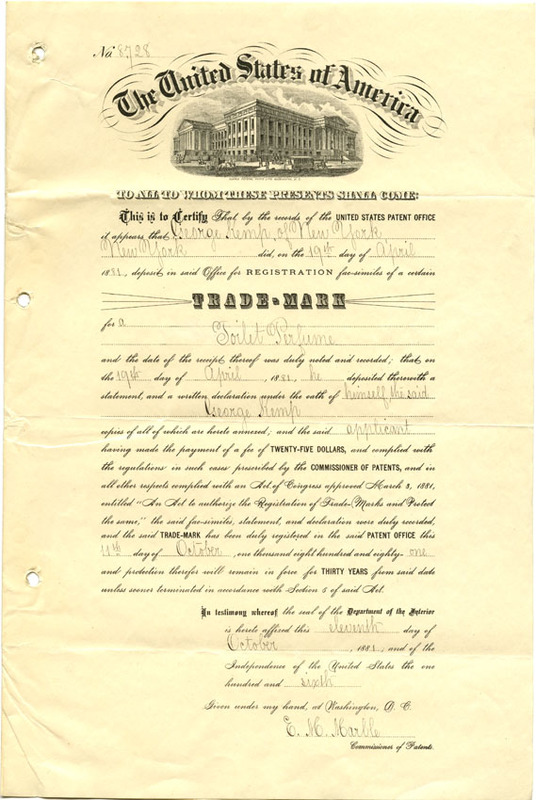 No. 8,728
The United States of America
TO ALL TO WHOM THESE PRESENTS SHALL COME:
This is to Certify That by the records of the UNITED STATES PATENT OFFICE
it appears that George Kemp of New York
New York did, on the 19th day of April
1881, deposit in said Office for REGISTRATION fac-similes of a certain
TRADE-MARK
for a
Toilet Perfume
and the date of the receipt thereof was duly noted and recorded; that on
the 19th day of April, 1881, he deposited therewith a
statement, and a written declaration under the oath of himself, the said
George Kemp
copies of all of which are hereto annexed; and the said applicant
having made the payment of a fee of TWENTY-FIVE DOLLARS, and complied with
the regulations in such cases prescribed by the COMMISSIONER OF PATENTS, and in
all other respects complied with an Act of Congress approved March 3, 1881,
entitled "An Act to authorize the Registration of Trade-Marks and Protect
the same," the said fac-similes, statement, and declaration were duly recorded,
and the said TRADE-MARK has been duly registered in the said PATENT OFFICE this
11th day of October, one thousand eight hundred and eighty-one
and protection therefor will remain in force for THIRTY YEARS from said date
unless sooner terminated in accordance with Section 5 of said Act.
In testimony whereof the seal of the Department of the Interior
is hereto affixed this eleventh day of
October, 1881, and of the
Independence of the United States the one
hundred and sixth
Given under my hand, at Washington, D. C.
E. M. Marble
Commissioner of Patents.